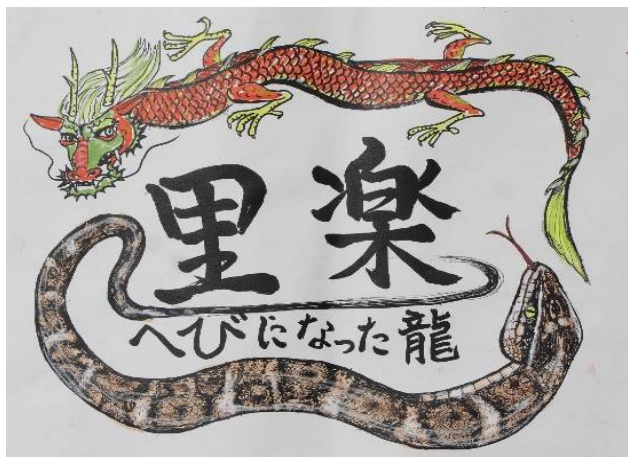 里楽
へびになった龍